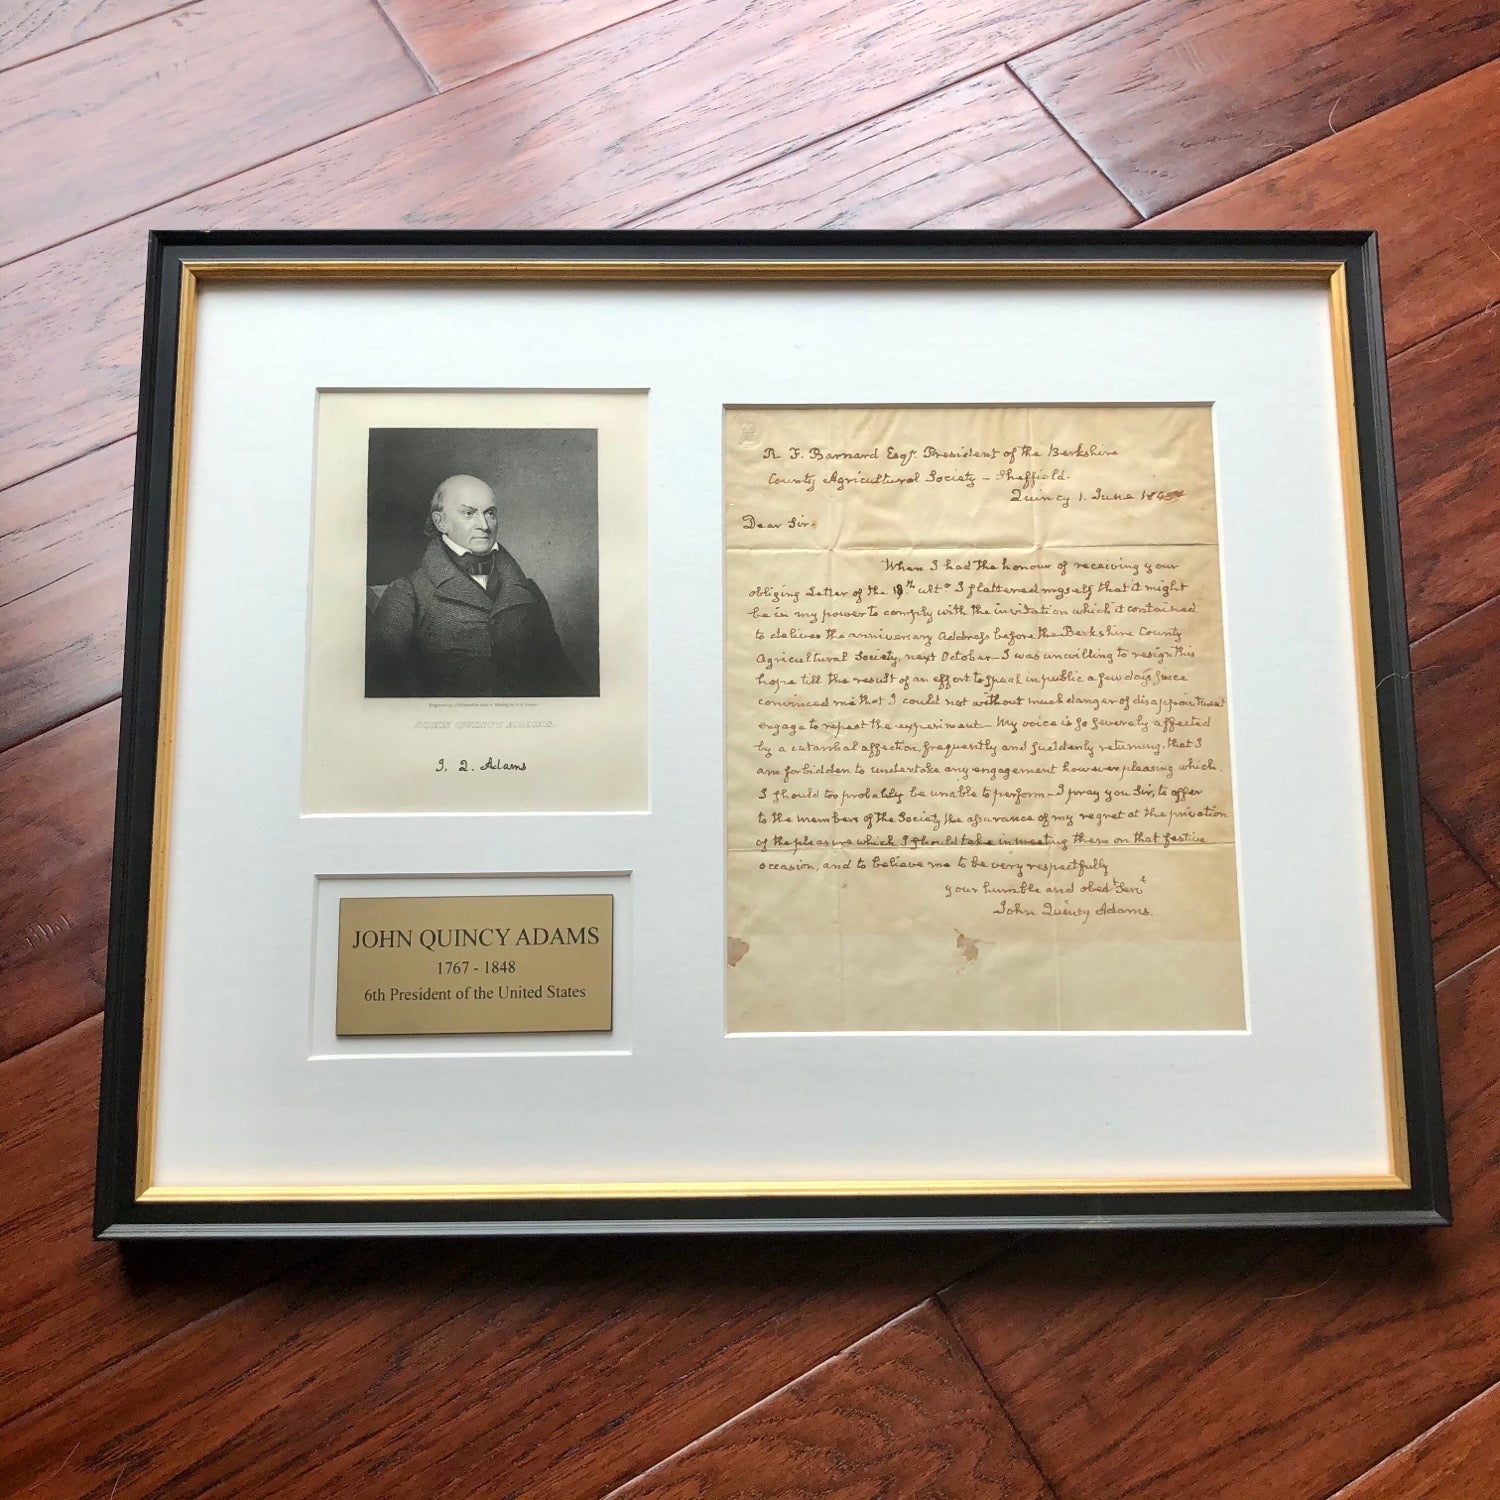 JOHN QUINCY ADAMS.
J. Q. Adams
JOHN QUINCY ADAMS
1767 - 1848
6th President of the United States
R. F. Barnard Esqr. President of the Berkshire
County Agricultural Society – Sheffield.
Quincy 1. June
Dear Sir.
When I had the honour of receiving your
obliging Letter of the ulto I flattered myself that it might
be in my power to comply with the invitation which it contained
to deliver the anniversary Address before the Berkshire County
Agricultural Society, next October – I was unwilling to resign this
hope till the result of an effort to speak in public a few days since
convinced me that I could not without much danger of disappointment
engage to repeat the experiment – My voice is so severely affected
by a catarrhal affection, frequently and suddenly returning, that I
am forbidden to undertake any engagement however pleasing which
I should too probably be unable to perform – I pray you Sir, to offer
to the members of the Society the assurance of my regret at the privation
of the pleasure which I should take in meeting them on that festive
occasion, and to believe me to be very respectfully
your humble and obedt Servt
John Quincy Adams.